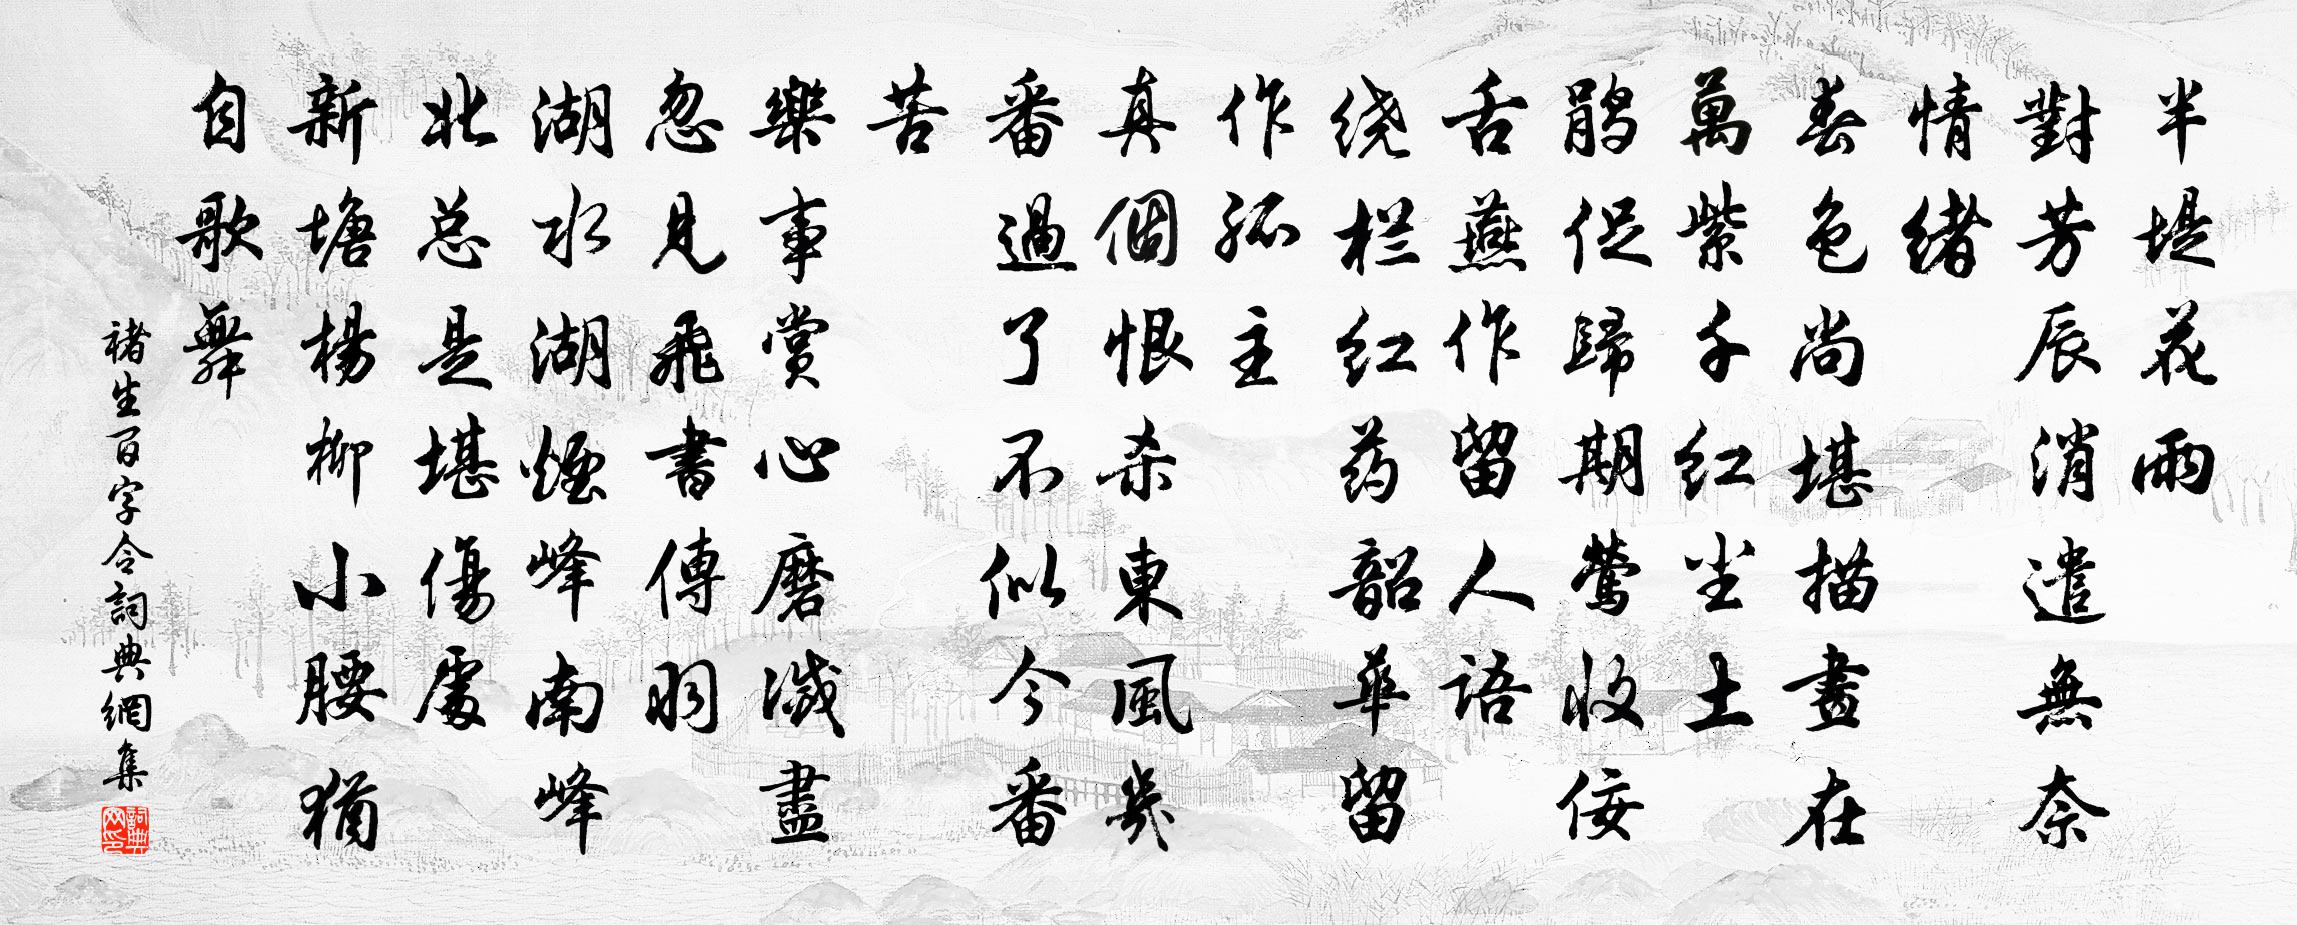 半堤花雨
對芳辰消遣無奈
情緒
春色尚堪描畫在
萬紫千红尘土
鹃促歸期莺收佞
舌燕作留人语
绕栏红药韶華留
作孤主
真個恨杀東風幾
番過了不似今番
苦
樂事赏心磨滅盡
忽見飛書傳羽
湖水湖煙峰南峰
北总是堪傷處
新塘楊柳小腰猶
自歌舞
褚生百字令詞典網集
詞典网印